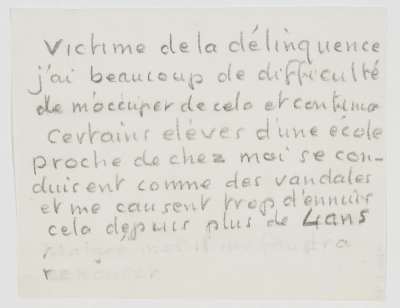 Victime de la délinquence
j'ai beaucoup de difficulté
de m'occuper de cela et continu
Certains elèves d'une école
proche de chez moi se con-
duisent comme des vandales
et me causent trop d'ennuis
cela depuis plus de 4 ans
me faudra
renoncer